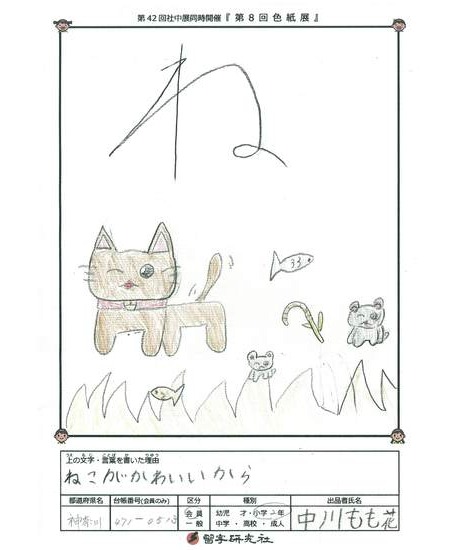 第42回社中展同時開催『第8回色紙展』
ね
上の文字・言葉を書いた理由
ねこがかわいいから
都道府県名 台帳番号(会員のみ) 区分 種別 出品者氏名
神奈川 会員 幼児 才・小学2年 中川もも花
一般 中学・高校・成人
習字研究社